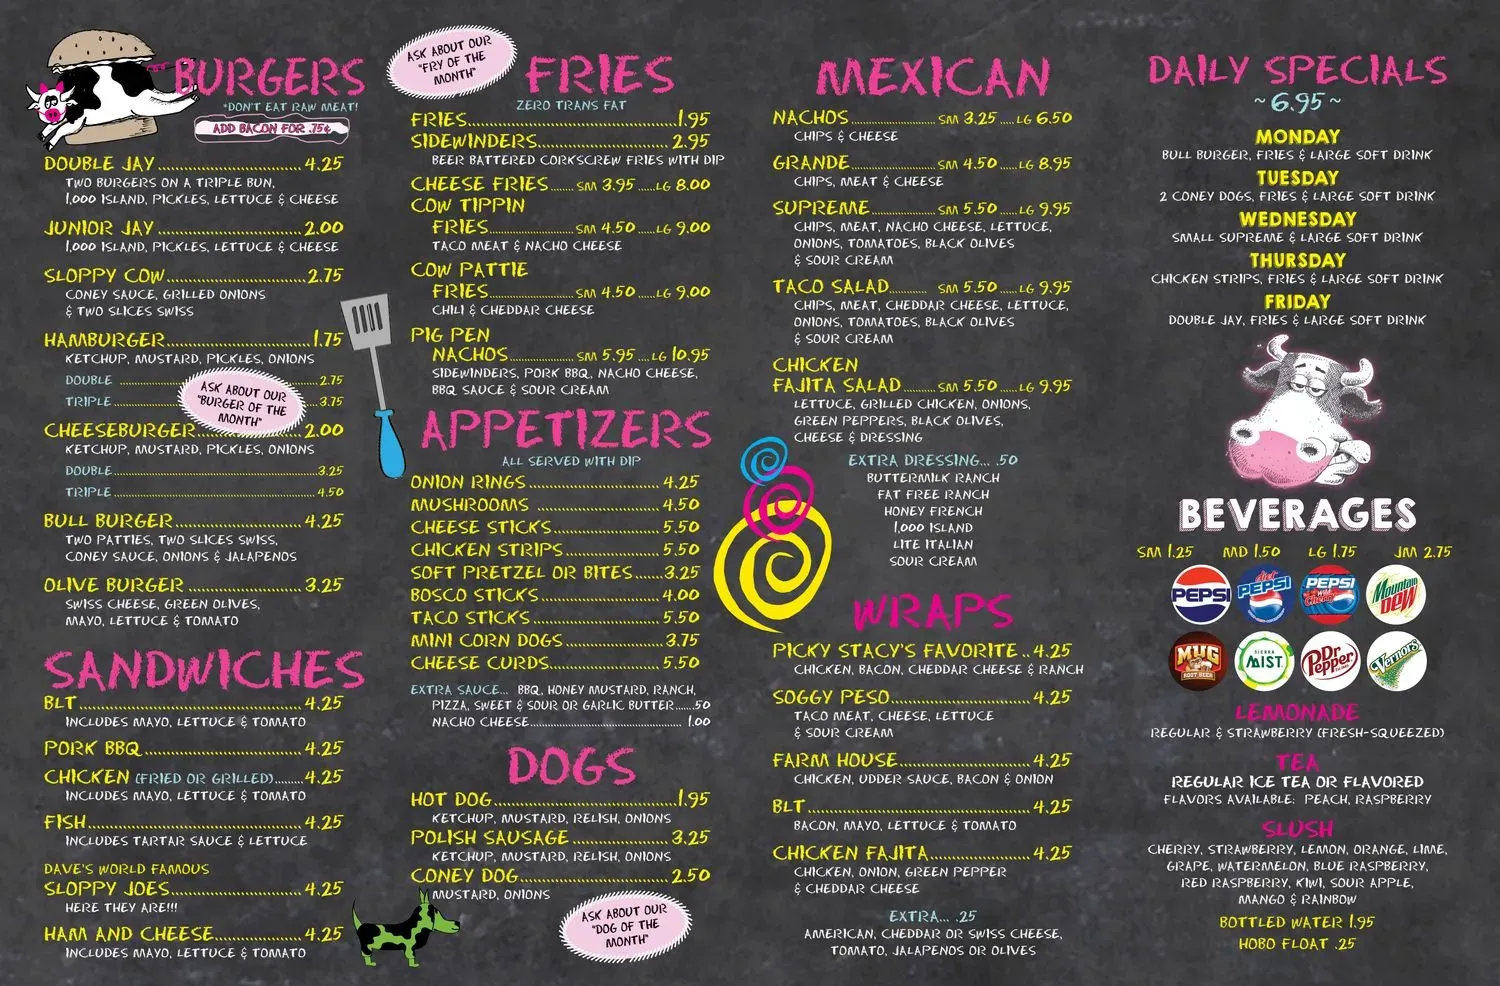 BURGERS
*DON'T EAT RAW MEAT!
ADD BACON FOR .75¢
DOUBLE JAY 4.25
TWO BURGERS ON A TRIPLE BUN,
1,000 ISLAND, PICKLES, LETTUCE & CHEESE
JUNIOR JAY 2.00
1,000 ISLAND, PICKLES, LETTUCE & CHEESE
SLOPPY COW 2.75
CONEY SAUCE, GRILLED ONIONS
& TWO SLICES SWISS
HAMBURGER 1.75
KETCHUP, MUSTARD, PICKLES, ONIONS
DOUBLE 2.75
TRIPLE 3.75
ASK ABOUT OUR
"BURGER OF THE
MONTH"
CHEESEBURGER 2.00
KETCHUP, MUSTARD, PICKLES, ONIONS
DOUBLE 3.25
TRIPLE 4.50
BULL BURGER 4.25
TWO PATTIES, TWO SLICES SWISS,
CONEY SAUCE, ONIONS & JALAPENOS
OLIVE BURGER 3.25
SWISS CHEESE, GREEN OLIVES,
MAYO, LETTUCE & TOMATO
SANDWICHES
BLT 4.25
INCLUDES MAYO, LETTUCE & TOMATO
PORK BBQ 4.25
CHICKEN (FRIED OR GRILLED) 4.25
INCLUDES MAYO, LETTUCE & TOMATO
FISH 4.25
INCLUDES TARTAR SAUCE & LETTUCE
DAVE'S WORLD FAMOUS
SLOPPY JOES 4.25
HERE THEY ARE!!!
HAM AND CHEESE 4.25
INCLUDES MAYO, LETTUCE & TOMATO
ASK ABOUT OUR
"FRY OF THE
MONTH"
FRIES
ZERO TRANS FAT
FRIES 1.95
SIDEWINDERS 2.95
BEER BATTERED CORKSCREW FRIES WITH DIP
CHEESE FRIES SM 3.95 LG 8.00
COW TIPPIN
FRIES SM 4.50 LG 9.00
TACO MEAT & NACHO CHEESE
COW PATTIE
FRIES SM 4.50 LG 9.00
CHILI & CHEDDAR CHEESE
PIG PEN
NACHOS SM 5.95 LG 10.95
SIDEWINDERS, PORK BBQ, NACHO CHEESE,
BBQ SAUCE & SOUR CREAM
APPETIZERS
ALL SERVED WITH DIP
ONION RINGS 4.25
MUSHROOMS 4.50
CHEESE STICKS 5.50
CHICKEN STRIPS 5.50
SOFT PRETZEL OR BITES 3.25
BOSCO STICKS 4.00
TACO STICKS 5.50
MINI CORN DOGS 3.75
CHEESE CURDS 5.50
EXTRA SAUCE... BBQ, HONEY MUSTARD, RANCH,
PIZZA, SWEET & SOUR OR GARLIC BUTTER .50
NACHO CHEESE 1.00
DOGS
HOT DOG 1.95
KETCHUP, MUSTARD, RELISH, ONIONS
POLISH SAUSAGE 3.25
KETCHUP, MUSTARD, RELISH, ONIONS
CONEY DOG 2.50
MUSTARD, ONIONS
ASK ABOUT OUR
"DOG OF THE
MONTH"
MEXICAN
NACHOS SM 3.25 LG 6.50
CHIPS & CHEESE
GRANDE SM 4.50 LG 8.95
CHIPS, MEAT & CHEESE
SUPREME SM 5.50 LG 9.95
CHIPS, MEAT, NACHO CHEESE, LETTUCE,
ONIONS, TOMATOES, BLACK OLIVES
& SOUR CREAM
TACO SALAD SM 5.50 LG 9.95
CHIPS, MEAT, CHEDDAR CHEESE, LETTUCE,
ONIONS, TOMATOES, BLACK OLIVES
& SOUR CREAM
CHICKEN
FAJITA SALAD SM 5.50 LG 9.95
LETTUCE, GRILLED CHICKEN, ONIONS,
GREEN PEPPERS, BLACK OLIVES,
CHEESE & DRESSING
EXTRA DRESSING... .50
BUTTERMILK RANCH
FAT FREE RANCH
HONEY FRENCH
1,000 ISLAND
LITE ITALIAN
SOUR CREAM
WRAPS
PICKY STACY'S FAVORITE 4.25
CHICKEN, BACON, CHEDDAR CHEESE & RANCH
SOGGY PESO 4.25
TACO MEAT, CHEESE, LETTUCE
& SOUR CREAM
FARM HOUSE 4.25
CHICKEN, UDDER SAUCE, BACON & ONION
BLT 4.25
BACON, MAYO, LETTUCE & TOMATO
CHICKEN FAJITA 4.25
CHICKEN, ONION, GREEN PEPPER
& CHEDDAR CHEESE
EXTRA... .25
AMERICAN, CHEDDAR OR SWISS CHEESE,
TOMATO, JALAPENOS OR OLIVES
DAILY SPECIALS
~ 6.95 ~
MONDAY
BULL BURGER, FRIES & LARGE SOFT DRINK
TUESDAY
2 CONEY DOGS, FRIES & LARGE SOFT DRINK
WEDNESDAY
SMALL SUPREME & LARGE SOFT DRINK
THURSDAY
CHICKEN STRIPS, FRIES & LARGE SOFT DRINK
FRIDAY
DOUBLE JAY, FRIES & LARGE SOFT DRINK
BEVERAGES
SM 1.25 MD 1.50 LG 1.75 JM 2.75
PEPSI
diet PEPSI
PEPSI Wild Cherry
Mountain Dew
MUG ROOT BEER
SIERRA MIST
Dr Pepper
Vernors
LEMONADE
REGULAR & STRAWBERRY (FRESH-SQUEEZED)
TEA
REGULAR ICE TEA OR FLAVORED
FLAVORS AVAILABLE: PEACH, RASPBERRY
SLUSH
CHERRY, STRAWBERRY, LEMON, ORANGE, LIME,
GRAPE, WATERMELON, BLUE RASPBERRY,
RED RASPBERRY, KIWI, SOUR APPLE,
MANGO & RAINBOW
BOTTLED WATER 1.95
HOBO FLOAT .25